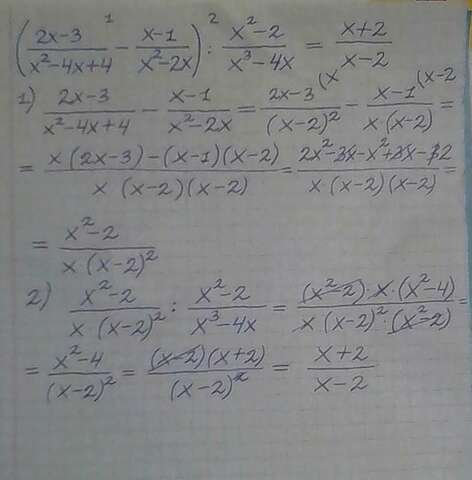 ((2x-3)/(x²-4x+4) -¹ (x-1)/(x²-2x)) :² (x²-2)/(x³-4x) = (x+2)/(x-2)
1) (2x-3)/(x²-4x+4) - (x-1)/(x²-2x) = (2x-3)/(x-2)² (x - (x-1)/(x·(x-2)) (x-2 =
= (x(2x-3)-(x-1)(x-2))/(x(x-2)(x-2)) = (2x²-3x-x²+3x-2)/(x·(x-2)(x-2)) =
= (x²-2)/(x·(x-2)²)
2) (x²-2)/(x·(x-2)²) : (x²-2)/(x³-4x) = ((x²-2)·x·(x²-4))/(x(x-2)²·(x²-2)) =
= (x²-4)/(x-2)² = ((x-2)(x+2))/(x-2)² = (x+2)/(x-2)